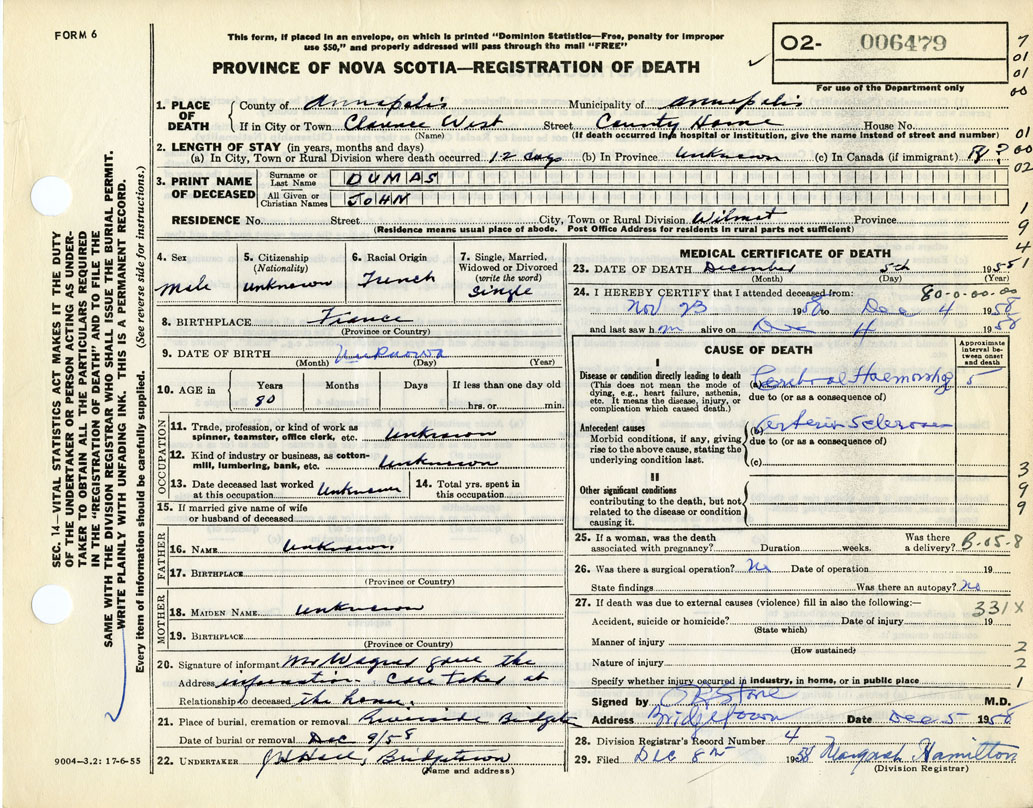 FORM 6
This form, if placed in an envelope, on which is printed "Dominion Statistics—Free, penalty for improper
use $50," and properly addressed will pass through the mail "FREE"
PROVINCE OF NOVA SCOTIA—REGISTRATION OF DEATH
O2- 006479
For use of the Department only
7
01
01
00
1. PLACE OF DEATH
County of Annapolis Municipality of Annapolis
If in City or Town Clarence West Street County Home House No.
(Name) (If death occurred in a hospital or institution, give the name instead of street and number)
01
2. LENGTH OF STAY (in years, months and days)
(a) In City, Town or Rural Division where death occurred 12 days (b) In Province Unknown (c) In Canada (if immigrant) ?
00
02
3. PRINT NAME OF DECEASED
Surname or Last Name DUMAS
All Given or Christian Names JOHN
RESIDENCE No. Street City, Town or Rural Division Wilmot Province
(Residence means usual place of abode. Post Office Address for residents in rural parts not sufficient)
1
9
4
SEC. 14—VITAL STATISTICS ACT MAKES IT THE DUTY
OF THE UNDERTAKER OR PERSON ACTING AS UNDER-
TAKER TO OBTAIN ALL THE PARTICULARS REQUIRED
IN THE "REGISTRATION OF DEATH" AND TO FILE THE
SAME WITH THE DIVISION REGISTRAR WHO SHALL ISSUE THE BURIAL PERMIT.
WRITE PLAINLY WITH UNFADING INK. THIS IS A PERMANENT RECORD.
Every item of information should be carefully supplied. (See reverse side for instructions.)
4. Sex
Male
5. Citizenship
(Nationality)
unknown
6. Racial Origin
French
7. Single, Married,
Widowed or Divorced
(write the word)
Single
8. BIRTHPLACE France
(Province or Country)
9. DATE OF BIRTH Unknown
(Month) (Day) (Year)
10. AGE in
Years Months Days If less than one day old
80 hrs. or min.
OCCUPATION
11. Trade, profession, or kind of work as
spinner, teamster, office clerk, etc. Unknown
12. Kind of industry or business, as cotton-
mill, lumbering, bank, etc. Unknown
13. Date deceased last worked
at this occupation Unknown
14. Total yrs. spent in
this occupation
15. If married give name of wife
or husband of deceased
FATHER
16. NAME Unknown
17. BIRTHPLACE
(Province or Country)
MOTHER
18. MAIDEN NAME Unknown
19. BIRTHPLACE
(Province or Country)
20. Signature of informant gave the
Address information. taker at
Relationship to deceased the home.
21. Place of burial, cremation or removal Riverside
Date of burial or removal Dec 9/58
22. UNDERTAKER Bridgetown
(Name and address)
9004—3.2: 17-6-55
MEDICAL CERTIFICATE OF DEATH
23. DATE OF DEATH December 5th 195
(Month) (Day) (Year)
24. I HEREBY CERTIFY that I attended deceased from: 80-0-00-00
Nov 23 1958 to Dec 4 1958
and last saw him alive on Dec 4 1958
CAUSE OF DEATH
Approximate
interval be-
tween onset
and death
I
Disease or condition directly leading to death
(This does not mean the mode of
dying, e.g., heart failure, asthenia,
etc. It means the disease, injury, or
complication which caused death.)
(a) Cerebral Haemorrhage 5
due to (or as a consequence of)
Antecedent causes
Morbid conditions, if any, giving
rise to the above cause, stating the
underlying condition last.
(b) Arterio Sclerosis
due to (or as a consequence of)
(c)
II
Other significant conditions
contributing to the death, but not
related to the disease or condition
causing it.
3
9
9
25. If a woman, was the death
associated with pregnancy? Duration weeks.
Was there
a delivery? B-05-8
26. Was there a surgical operation? No Date of operation 19
State findings Was there an autopsy? No
27. If death was due to external causes (violence) fill in also the following:—
331X
Accident, suicide or homicide? Date of injury 19
(State which)
Manner of injury
(How sustained)
2
Nature of injury
2
Specify whether injury occurred in industry, in home, or in public place
1
Signed by Stone M.D.
Address Bridgetown Date Dec 5 1958
28. Division Registrar's Record Number 4
29. Filed Dec 8th 1958 Margaret Hamilton
(Division Registrar)